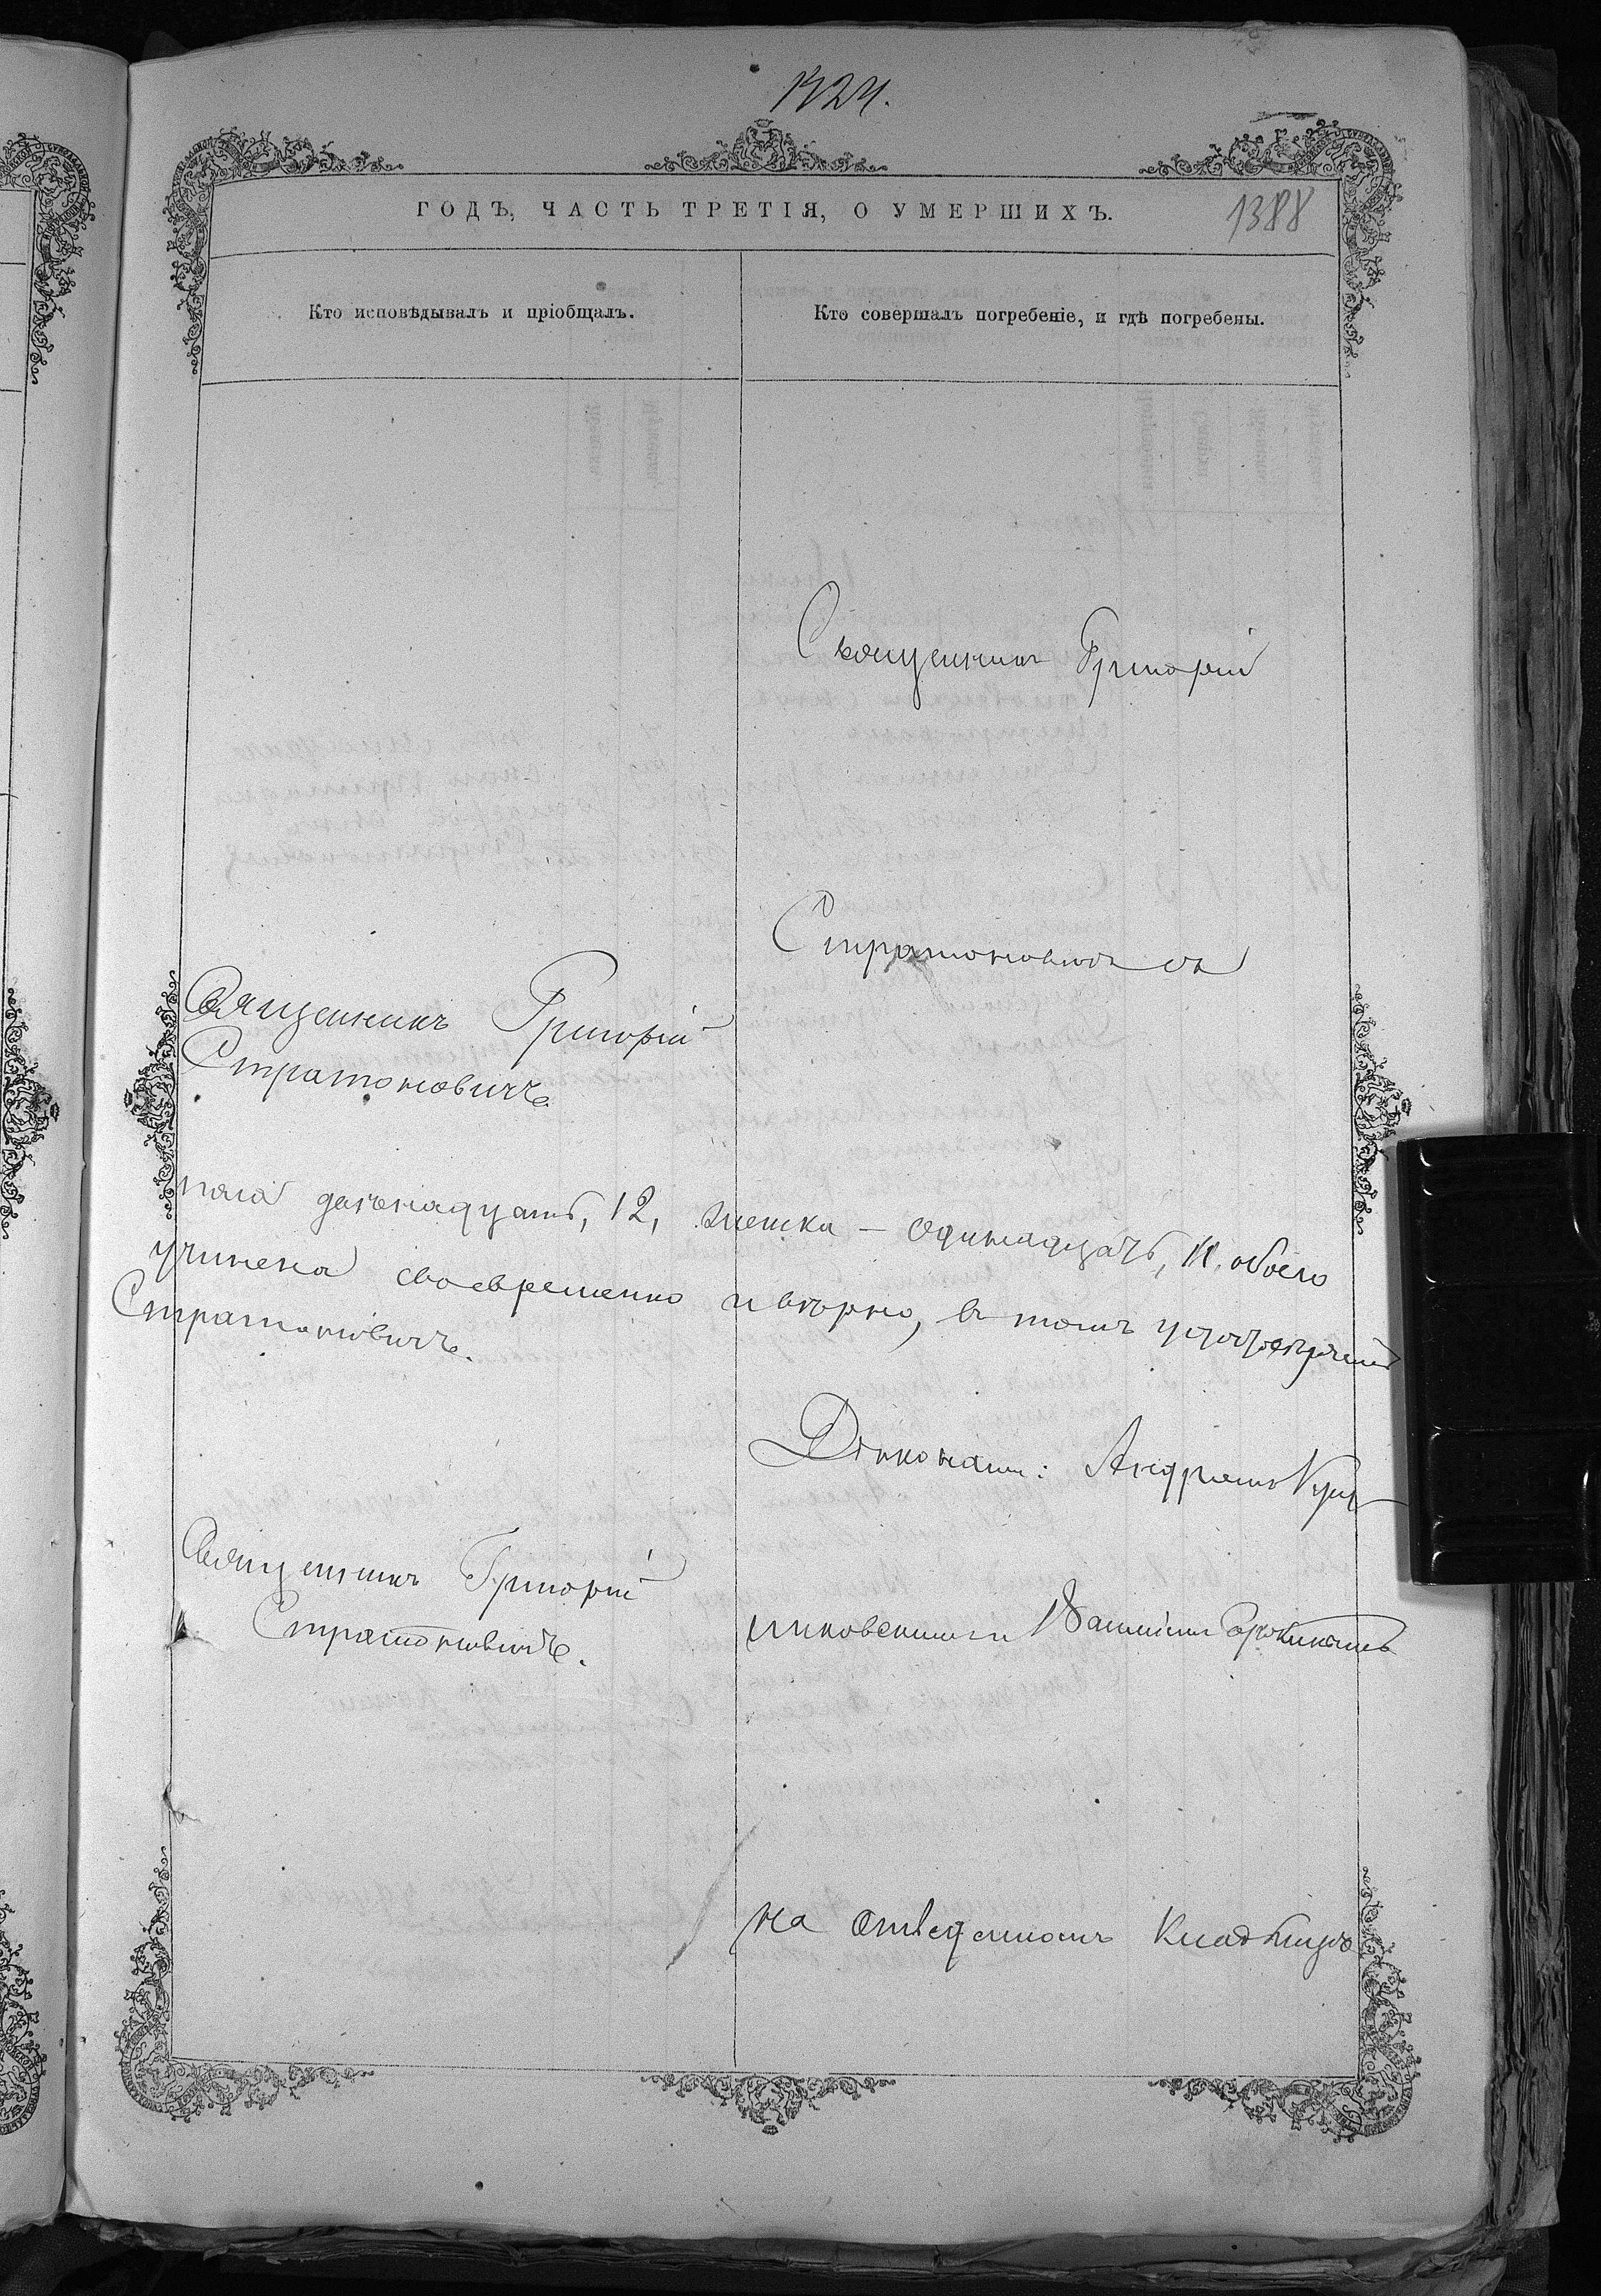 1424.
ГОДЪ, ЧАСТЬ ТРЕТІЯ, О УМЕРШИХЪ.
1388
Кто исповѣдывалъ и пріобщалъ.
Кто совершалъ погребеніе, и гдѣ погребены.
Священник Григорій
Стратоновичъ съ
Священникъ Григорій
Стратоновичъ.
пола двѣнадцать, 12, женска – одинадцать, 11, обоего
учинена своевременно и вѣрно, в томъ удостовѣряемъ
Стратоновичъ.
Діякономъ: Андреемъ
Священникъ Григорій
Стратоновичъ.
на отведенномъ Кладбищѣ